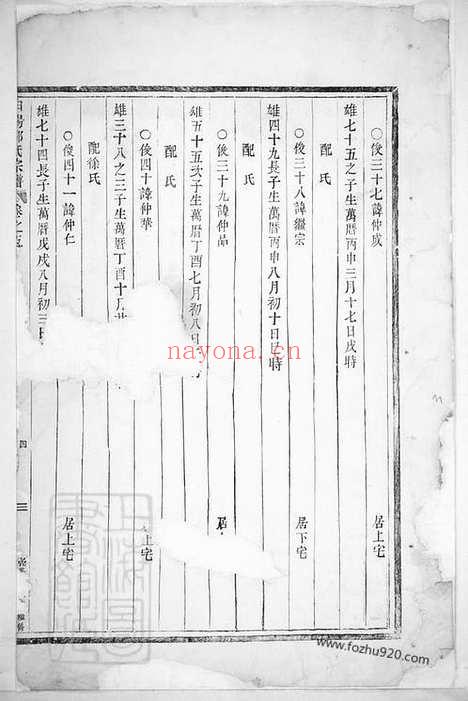 ○俊三十七諱仲成 居上宅
雄七十五之子生萬曆丙申三月十七日戌時
配 氏
○俊三十八諱繼宗 居下宅
雄四十九長子生萬曆丙申八月初十日 時
配 氏
○俊三十九諱仲品 居
雄五十五次子生萬曆丁酉七月初八日 時
配 氏
○俊四十諱仲華 上宅
雄三十八之三子生萬曆丁酉十月
配徐氏
○俊四十一諱仲仁 居上宅
雄七十四長子生萬曆戊戌八月初三
氏宗譜 卷之五 四
nayona.cn
www.fozhu920.com